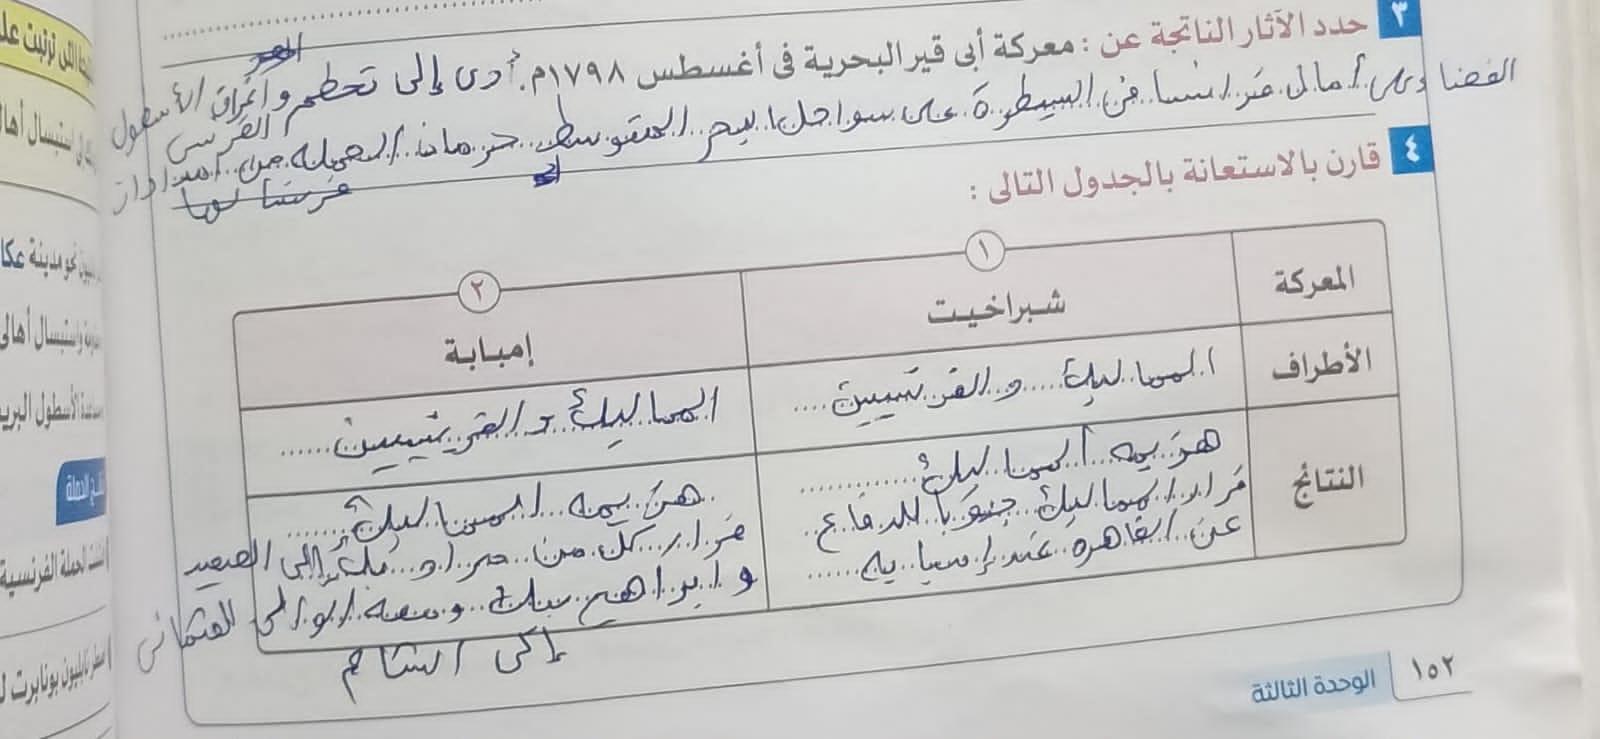 ٣ حدد الآثار الناتجة عن : معركة أبى قير البحرية فى أغسطس ١٧٩٨م. أدى إلى تحطم وإغراق الأسطول الفرنسى
القضا على أمال فرانسا فى السيطرة على سواحل البحر المتوسط حرمان الحملة من امدادات
فرنسا لها
٤ قارن بالاستعانة بالجدول التالى :
المعركة ١ شبراخيت ٢ إمبابة
الأطراف المماليك و الفرنسيين المماليك و الفرنسيين
النتائج هزيمه المماليك هزيمه المماليك
فرار المماليك جنوبا للدفاع فرار كل من مراد بك إلى الصعيد
عن القاهره عند إمبابه و ابراهيم بك ومعه الوالى العثمانى
إلى الشام
١٥٢ الوحدة الثالثة
نحو مدينة عكا
واستبسال أهالى
الأسطول البري
الحملة الفرنسية
نابليون بونابرت